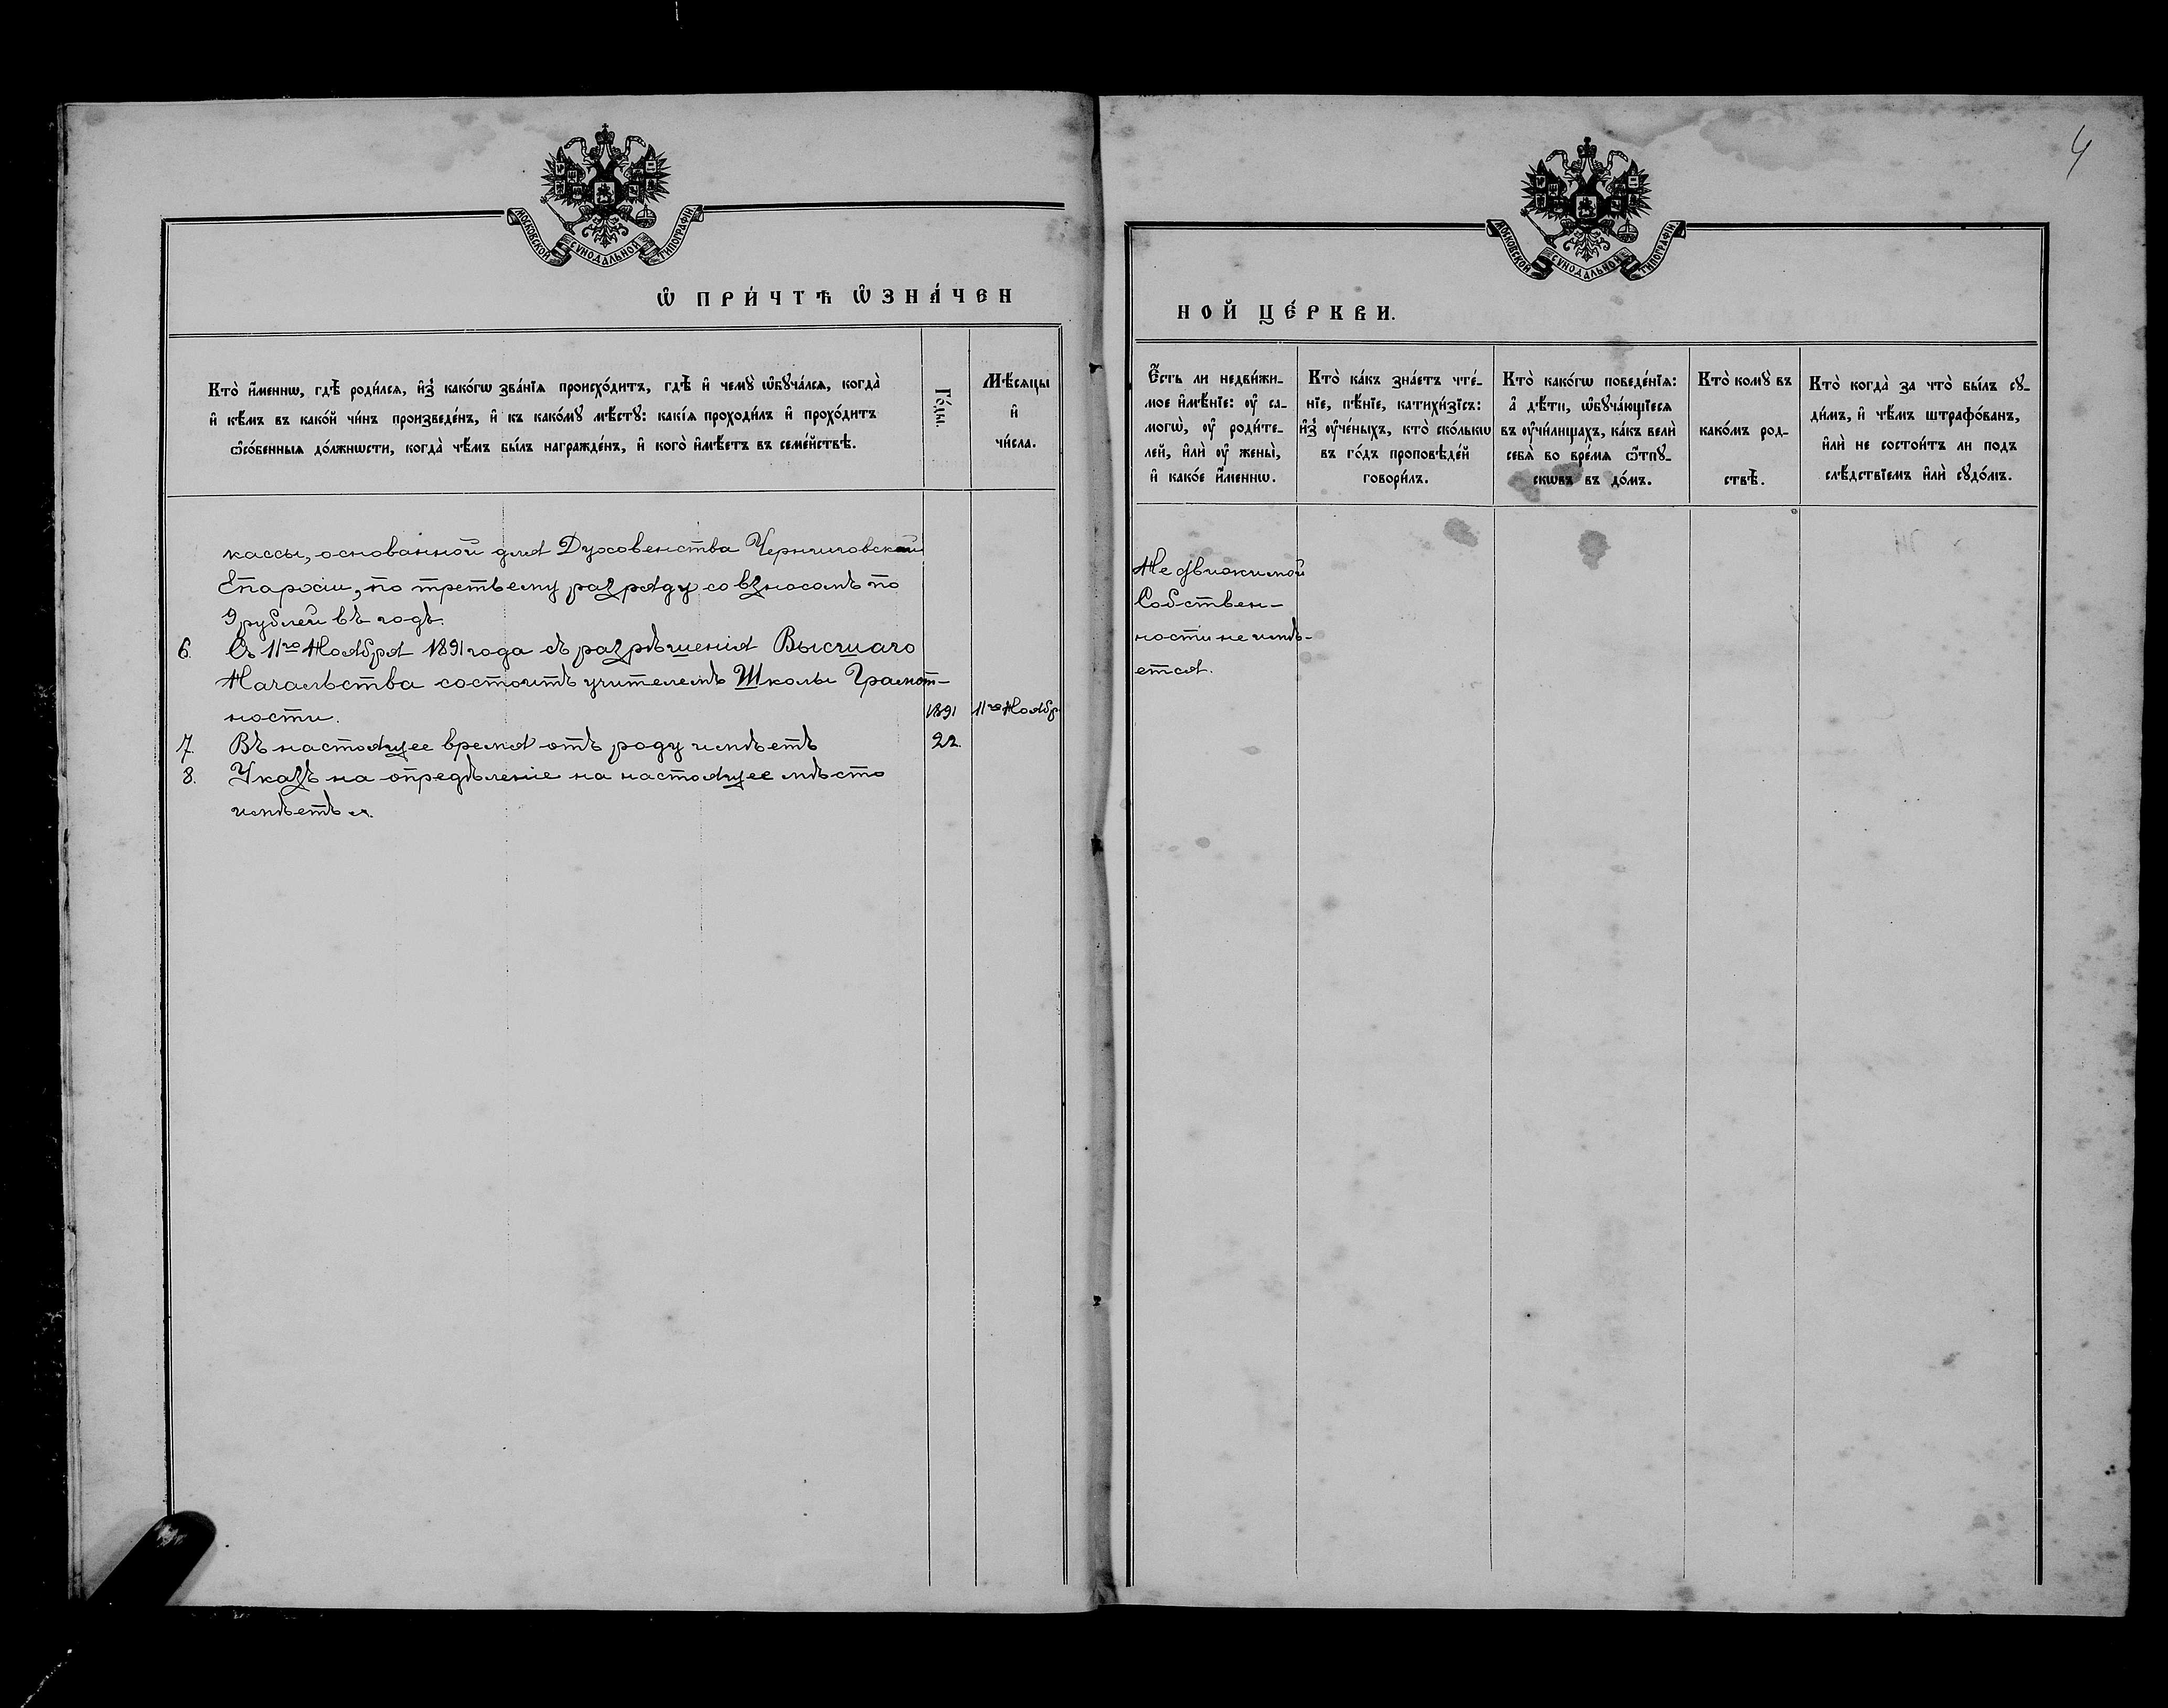 4
МОСКОВСКОЙ СѴНОДАЛЬНОЙ ТИПОГРАФІИ.
МОСКОВСКОЙ СѴНОДАЛЬНОЙ ТИПОГРАФІИ.
Ѡ҆ ПРИ́ЧТѢ Ѡ҆ЗНА́ЧЕН
НОЙ ЦЕ́РКВИ.
Кто̀ и҆́меннѡ, гдѣ̀ роди́лся, и҆з̾ како́гѡ зва́нїя происхо́дитъ, гдѣ̀ и҆ чемꙋ̀ ѡ҆бꙋча́лся, когда̀
и҆ кѣ́мъ въ како́й чи́нъ произведе́нъ, и҆ къ како́мꙋ мѣ́стꙋ: какі́я проходи́лъ и҆ прохо́дитъ
ѻ҆со́бенныя до́лжнѡсти, когда̀ чѣ́мъ бы́лъ награжде́нъ, и҆ кого̀ и҆мѣ́етъ въ семе́йствѣ.
Го́ды.
Мѣ́сяцы
и҆
чи́сла.
Є҆́сть ли недви́жи-
мое и҆мѣ́нїе: ᲂу҆ са-
могѡ̀, ᲂу҆ роди́те-
лей, и҆лѝ ᲂу҆ жены̀,
и҆ како́е и҆́меннѡ.
Кто̀ ка́къ зна́етъ чте́-
нїе, пѣ́нїе, катихи́зїсъ:
и҆з̾ ᲂу҆че́ныхъ, кто̀ ско́лькѡ
въ го́дъ проповѣ́дей
говори́лъ.
Кто̀ како́гѡ поведе́нїя:
а҆ дѣ́ти, ѡ҆бꙋча́ющїеся
въ ᲂу҆чи́лищахъ, ка́къ велѝ
себя̀ во вре́мя ѿпꙋ-
скѡвъ въ до́мъ.
Кто̀ комꙋ̀ въ
како́мъ род-
ствѣ̀.
Кто̀ когда̀ за что̀ бы́лъ сꙋ-
ди́мъ, и҆ чѣ́мъ штрафо́ванъ,
и҆лѝ не состои́тъ ли подъ
слѣ́дствїемъ и҆лѝ сꙋдо́мъ.
кассы, основанной для Духовенства Черниговской
Епархіи, по третьему разряду со взносомъ по
9 рублей въ годъ.
6. Съ 11го Ноября 1891 года съ разрѣшенія Высшаго
Начальства состоитъ учителемъ Школы Грамот-
ности. 1891 11го Ноябр.
7. Въ настоящее время отъ роду имѣетъ 22.
8. Указъ на опредѣленіе на настоящее мѣсто
имѣетъ ся.
Недвижимой
Собствен-
ности не имѣ-
ется.